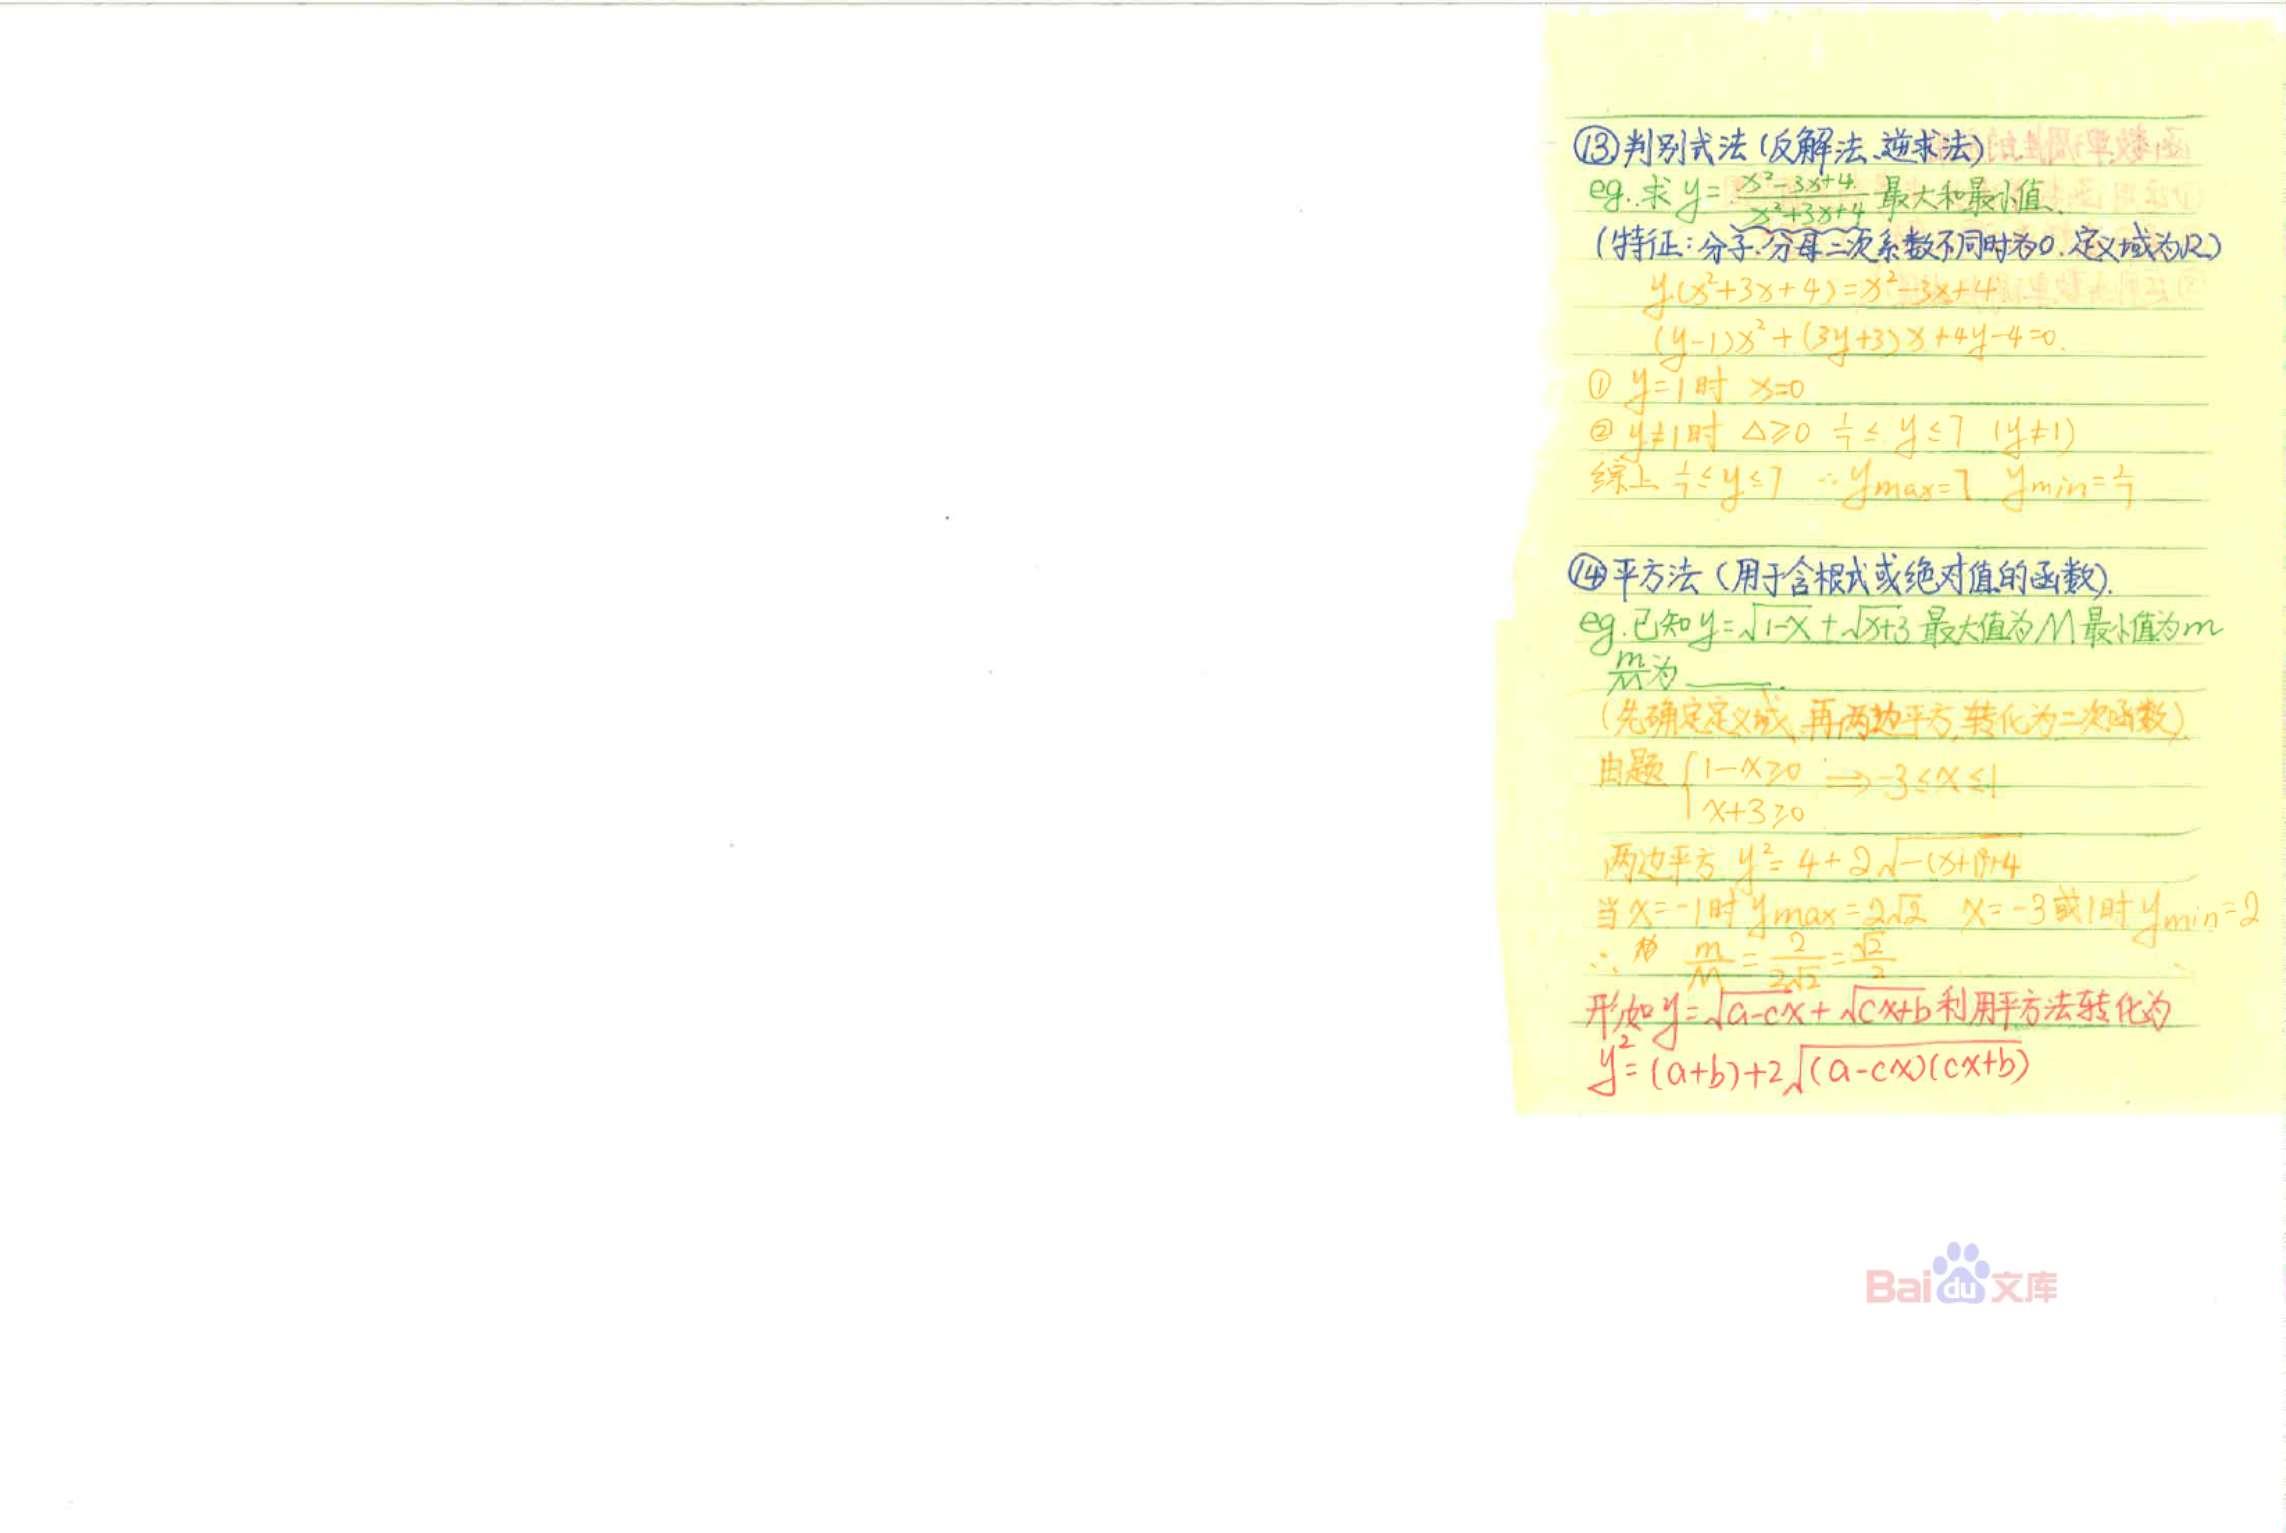 ⑬判别式法(反解法、逆求法)
eg.求 y=(x²-3x+4)/(x²+3x+4) 最大和最小值.
(特征:分子.分母二次系数不同时为0.定义域为R)
y(x²+3x+4)=x²-3x+4
(y-1)x²+(3y+3)x+4y-4=0.
① y=1时 x=0
② y≠1时 △≥0 1/7≤y≤7 (y≠1)
综上 1/7≤y≤7 ∴ymax=7 ymin=1/7
⑭平方法(用于含根式或绝对值的函数).
eg.已知y=√(1-x)+√(x+3) 最大值为M最小值为m
m/M为____.
(先确定定义域,再两边平方,转化为二次函数)
由题 {1-x≥0 ⇒ -3≤x≤1
x+3≥0
两边平方 y²=4+2√(-(x+1)²+4)
当x=-1时 ymax=2√2 x=-3或1时 ymin=2
∴ m/M=2/(2√2)=√2/2
形如y=√(a-cx)+√(cx+b)利用平方法转化为
y²=(a+b)+2√((a-cx)(cx+b))
Baidu文库